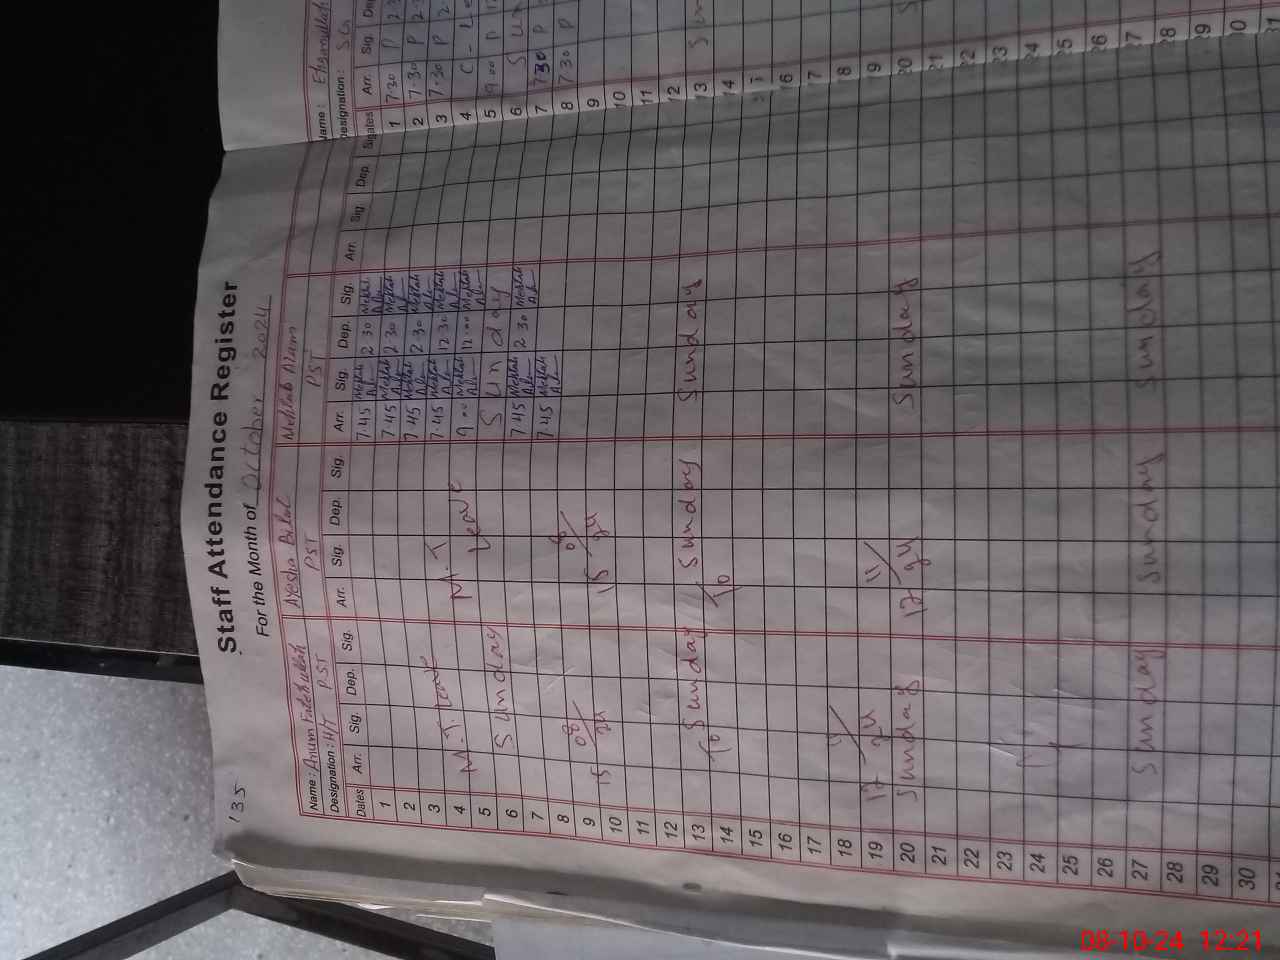 135
Staff Attendance Register
For the Month of October 2024
Name : Anum Fatehullah Ayesha Bilal Mehtab Alam
Designation : H/T PST PST PST
Dates Arr. Sig. Dep. Sig. Arr. Sig. Dep. Sig. Arr. Sig. Dep. Sig. Arr. Sig. Dep. Sig.
1 7.45 Mehtab 2 30 Mehtab
2 7.45 Mehtab 2 30 Mehtab
3 7.45 Mehtab 2 30 Mehtab
4 M.T. Leave M.T Leave 7.45 Mehtab 12 30 Mehtab
5 9.00 Mehtab 12.00 Mehtab
6 Sunday Sunday
7 7.45 Mehtab 2 30 Mehtab
8 7.45 Mehtab
9 15 08/24 15 08/24
10
11
12
13 Sunday Sunday Sunday
14 To To
15
16
17
18
19 17 11/24
20 Sunday 17 11/24 Sunday
21
22
23
24
25
26
27 Sunday Sunday Sunday
28
29
30
Name : Ehsanullah
Designation :
Dates Arr. Sig.
1 7.30 P
2 7.30 P
3 7.30 P
4
5 9.00 P
6 Sun
7 7 30 P
8 7 30 P
9
10
11
12
13 Sun
14
16
17
18
19
20
21
22
23
24
25
26
27
28
29
30
31
08-10-24 12:21